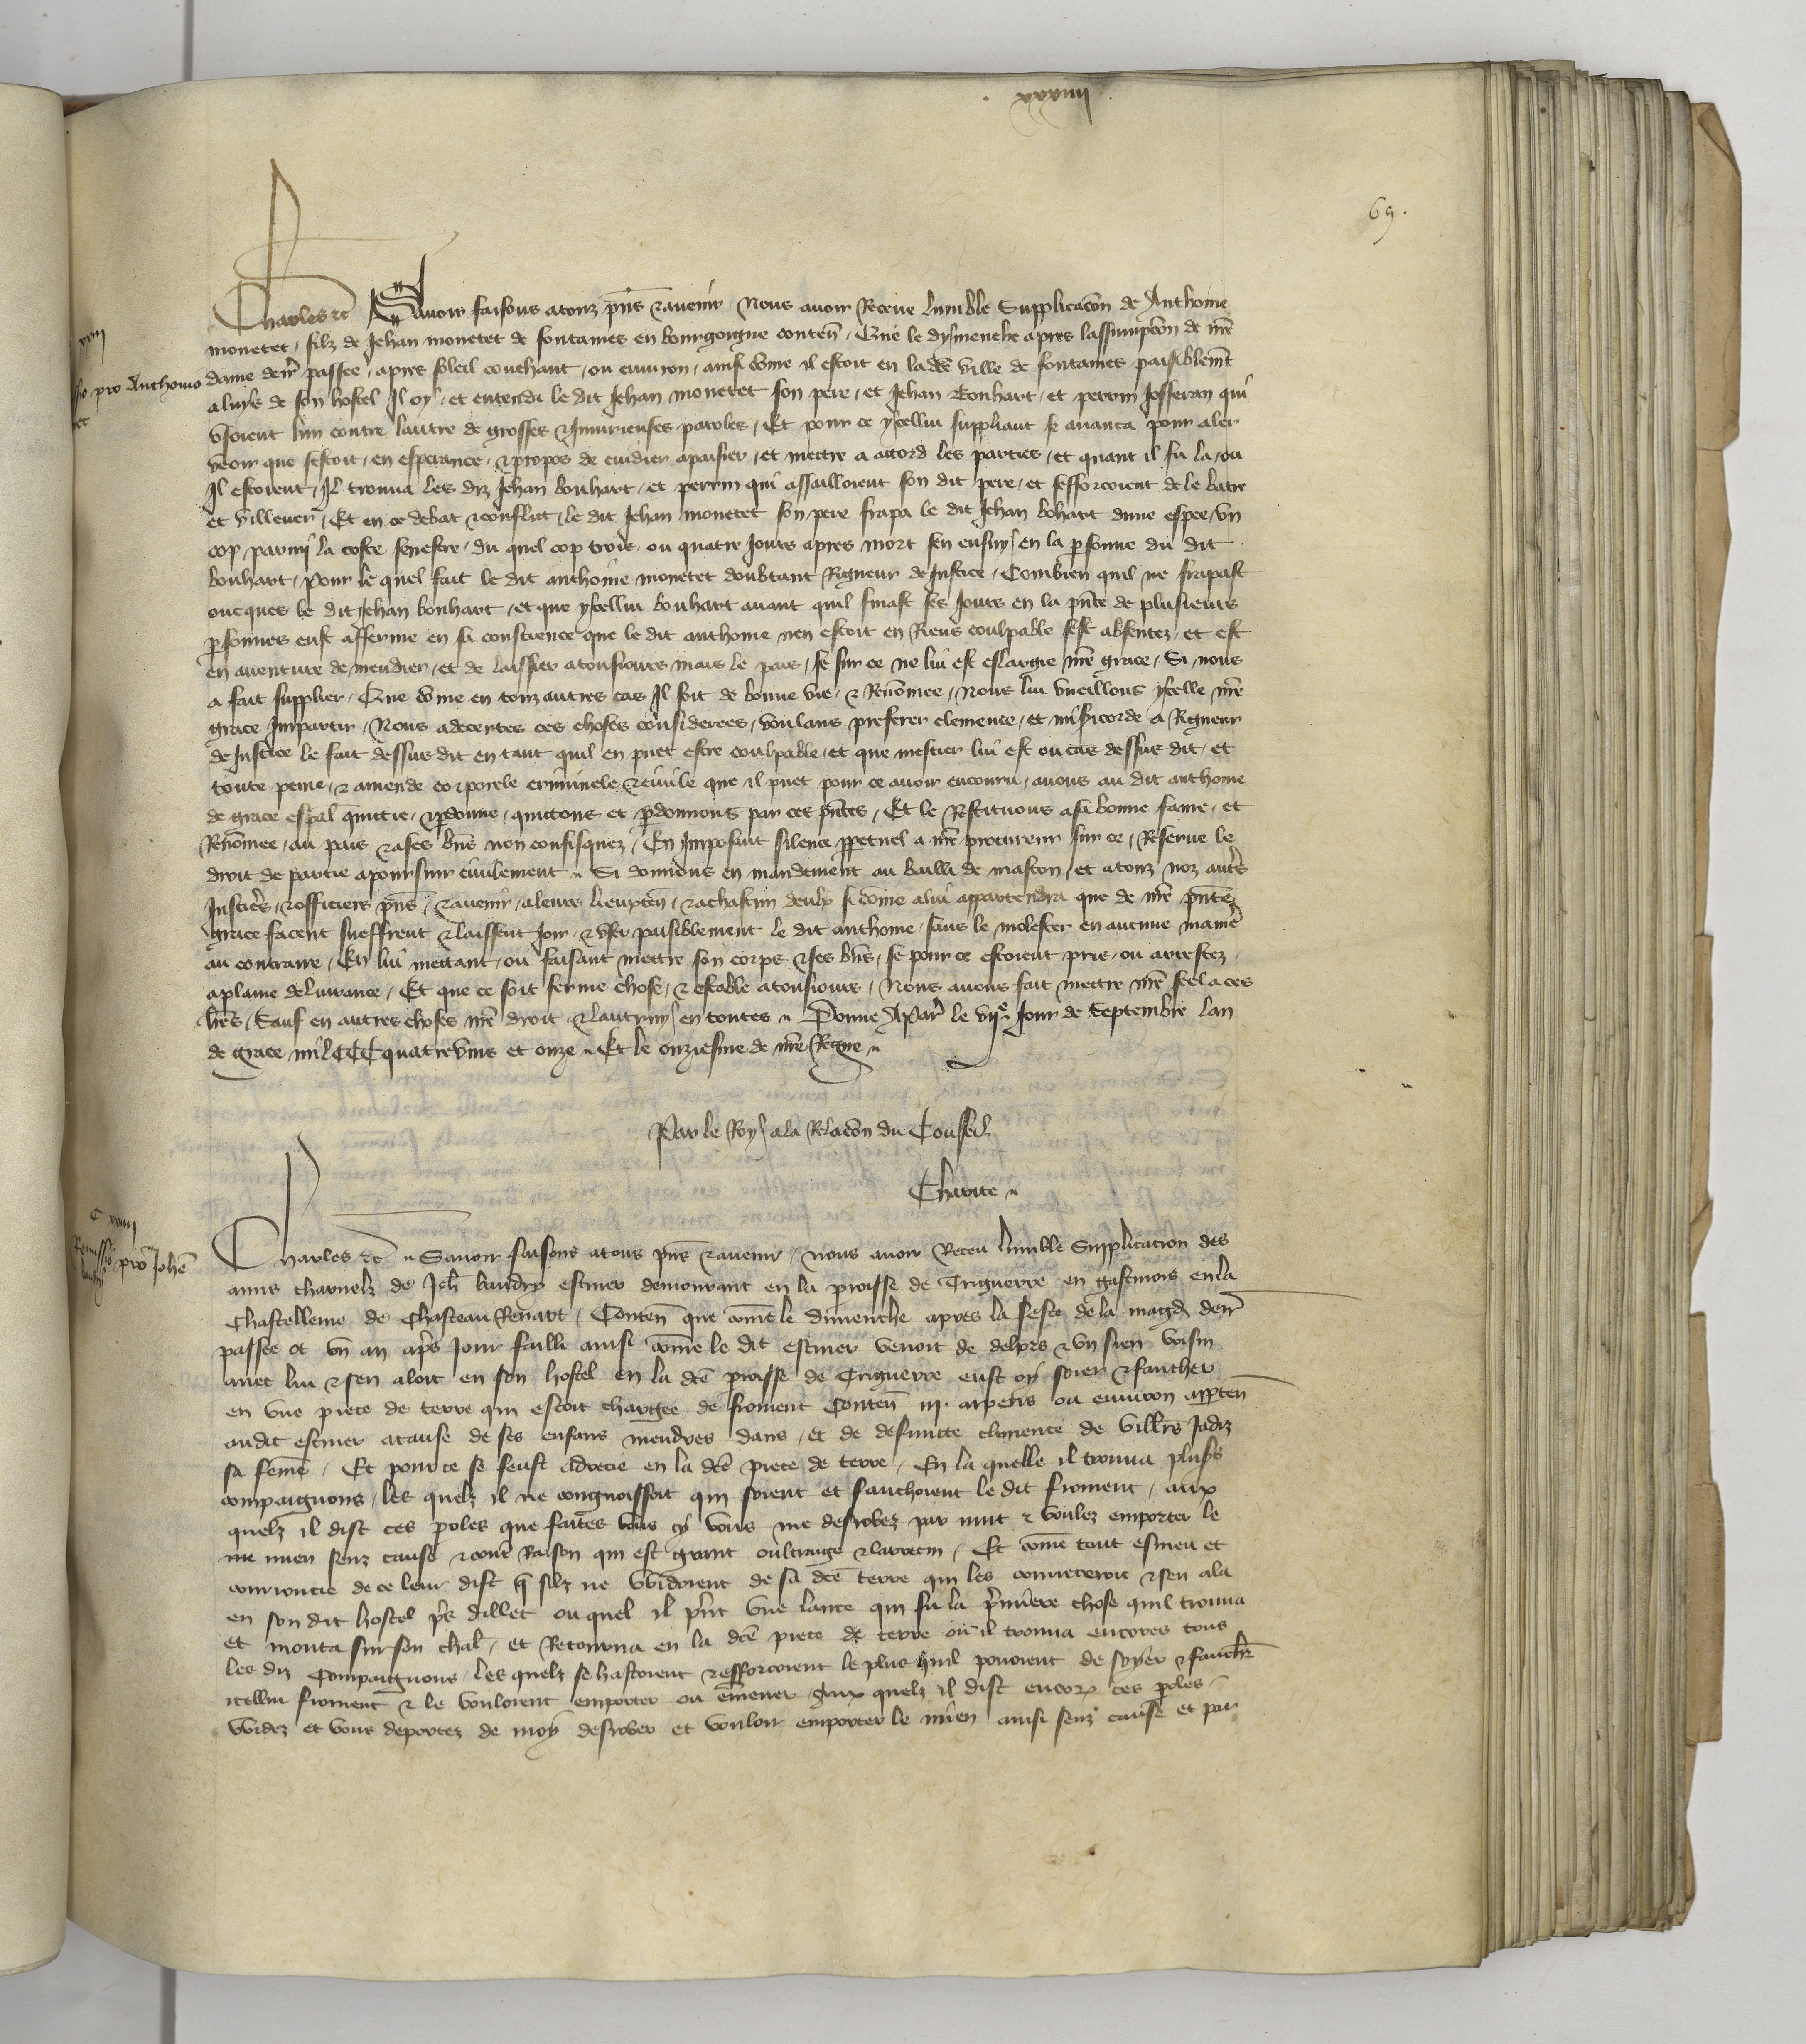 xxxiiii
69.
Charles etc Savoir faisons a touz pñs et avenir, Nous avoir Receue lumble Supplicacõn de Anthoine
monetet, filz de Jehan monetet de fontaines en bourgoigne conteñ, Que le dymenche apres lassumpcõn de nr̃e
dame derr̃ passee, apres soleil couchant, ou environ, ainsi cõme il estoit en lad̃ce ville de fontaines paisiblem̃t
a luys de son hostel Il oy, et entendi le dit Jehan monetet son pere, et Jehan Bonhart, et perrin Josserin qui
usoient lun contre lautre de grosses et Iniurieuses paroles, Et pour ce ycellui suppliant se avanca pour aler
veoir que sestoit, en esperance, et propos de cuidier apaisier, et mettre a accord les parties, et quant il fu la, ou
Il estoient, Il trouva les diz Jehan bonhart, et perrin qui assailloient son dit pere, et sefforcoient de le batre
et villener, Et en ce debat et conflut, le dit Jehan monetet son pere frapa le dit Jehan bohart dune espee, un
cop parmi la coste senestre, du quel cop trois, ou quatre Jours apres mort sen ensuy en la p̃sonne du dit
bonhart, Pour le quel fait le dit anthoine monetet doubtant Rigueur de Justice, Combien quil ne frapast
oncques le dit Jehan bonhart, et que ycellui bonhart avant quil finast ses Jours en la pñce de plusieurs
p̃sonnes eust afferme en sa conscience que le dit anthoine nen estoit en Riens coulpable sest absentez, et est
en aventure de mendier, et de laissier a tousiours mais le pais, se sur ce ne lui est eslargie nr̃e grace, Si nous
a fait supplier, Que cõme en touz autres cas Il soit de bonne vie, et Renõmee, Nous lui vueillons ycelle nr̃e
grace Impartir, Nous adecertes ces choses considerees, voulans preferer clemence, et mis̃icorde a Rigueur
de Justice le fait dessus dit en tant quil en puet estre coulpable, et que mestier lui est ou cas dessus dit, et
toute peine, et amende corporele criminele et civile que il puet pour ce avoir encouru, avons au dit anthoine
de grace esp̃al quittie, et p̃donne, quittons et p̃donnons par ces pñtes, Et le Restituons a sa bonne fame, et
Renõmee, au pais et a ses bñs non confisquez, En Imposant silence p̃petuel a nr̃e procureur sur ce, Reserve le
droit de partie a poursuir civilement Si donnons en mandement au bailli de mascon, et a touz noz autr̃s
Justic̃rs, et officiers pñs, et avenir, a leurs lieuxteñ, et a chascun deulx si cõme a lui appartendra que de nr̃e pñte
grace facent sueffrent et laissent Joir, et user paisiblement le dit anthoine, sans le molester en aucune manie͂
au contraire, En lui mettant, ou faisant mettre son corps et ses bñs, se pour ce estoient, pris, ou arrestez,
a plaine delivrance, Et que ce soit ferme chose, et estable a tousiours, Nous avons fait mettre nr̃e seel a ces
lr̃es, Sauf en autres choses nr̃e droit et lautruy en toutes Donne A Par̃ le vije Jour de Septembre lan
de grace mil CCC quatrevins et onze Et le onziesme de nr̃e Regne
Par le Roy a la Relacõn du Conseil
Charite
Charles etc Savoir faisons a tous pñs et avenir, nous avoir Receu lumble Supplicacion des
amis charnelz de Jeh̃ baudry escuier demourant en la p̃roisse de Triguerre en gastinois en la
Chastellenie de Chasteau Renart, Conteñ que cõme le dimenche apres la feste de la magd̃ derr̃
passee ot un an ap̃s Jour failli ainsi cõme le dit escuier venoit de dehors et un sien voisin
avec lui et sen aloit en son hostel en la dc̃e p̃roisse de Triguerre eust oy soier et faucher
en une piece de terre qui estoit chargee de froment Conteñ iij. arpens ou environ apparteñ
audit escuier a cause de ses enfans mendres dans, et de defuncte climence de vill̃rs Jadiz
sa fem̃e, Et pour ce se feust adrecie en la dc̃e piece de terre, En la quelle il trouva plus̃s
compaignons, les quelz il ne congnoissoit qui soient et fauchoient le dit froment, aux
quelz il dist ces p̃oles que faites vous cy vous me desrobez par nuit et voulez emporter le
mien senz cause et cont̃ Raison qui est grant oultrage et larrecin, Et cõme tout esmeu et
courroucie de ce leur dist q̃ silz ne widoient de sa dc̃e terre qui les courreceroit et sen ala
en son dit hostel p̃s dillec ou quel il p̃nt une lance qui fu la p̃miere chose quil trouva
et monta sur son chal̃, et Retourna en la dc̃e piece de terre ou il trouva encores tous
les diz Compaignons, les quelz se hastoient et efforcoient le plus quil povoient de soyer et fauch̃r
icellui froment et le vouloient emporter ou em̃ener aux quelz il dist encor̃ ces p̃oles
widez et vous deportez de moy desrober et vouloir emporter le mien ainsi senz cause et par
xviij
pro Anthonio
C xviiij
Remissio pro Joh̃e
baudry